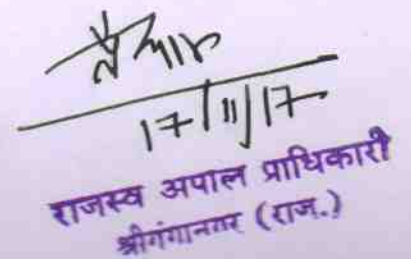 17/11/17
राजस्व अपाल प्राधिकारी
श्रीगंगानगर (राज.)